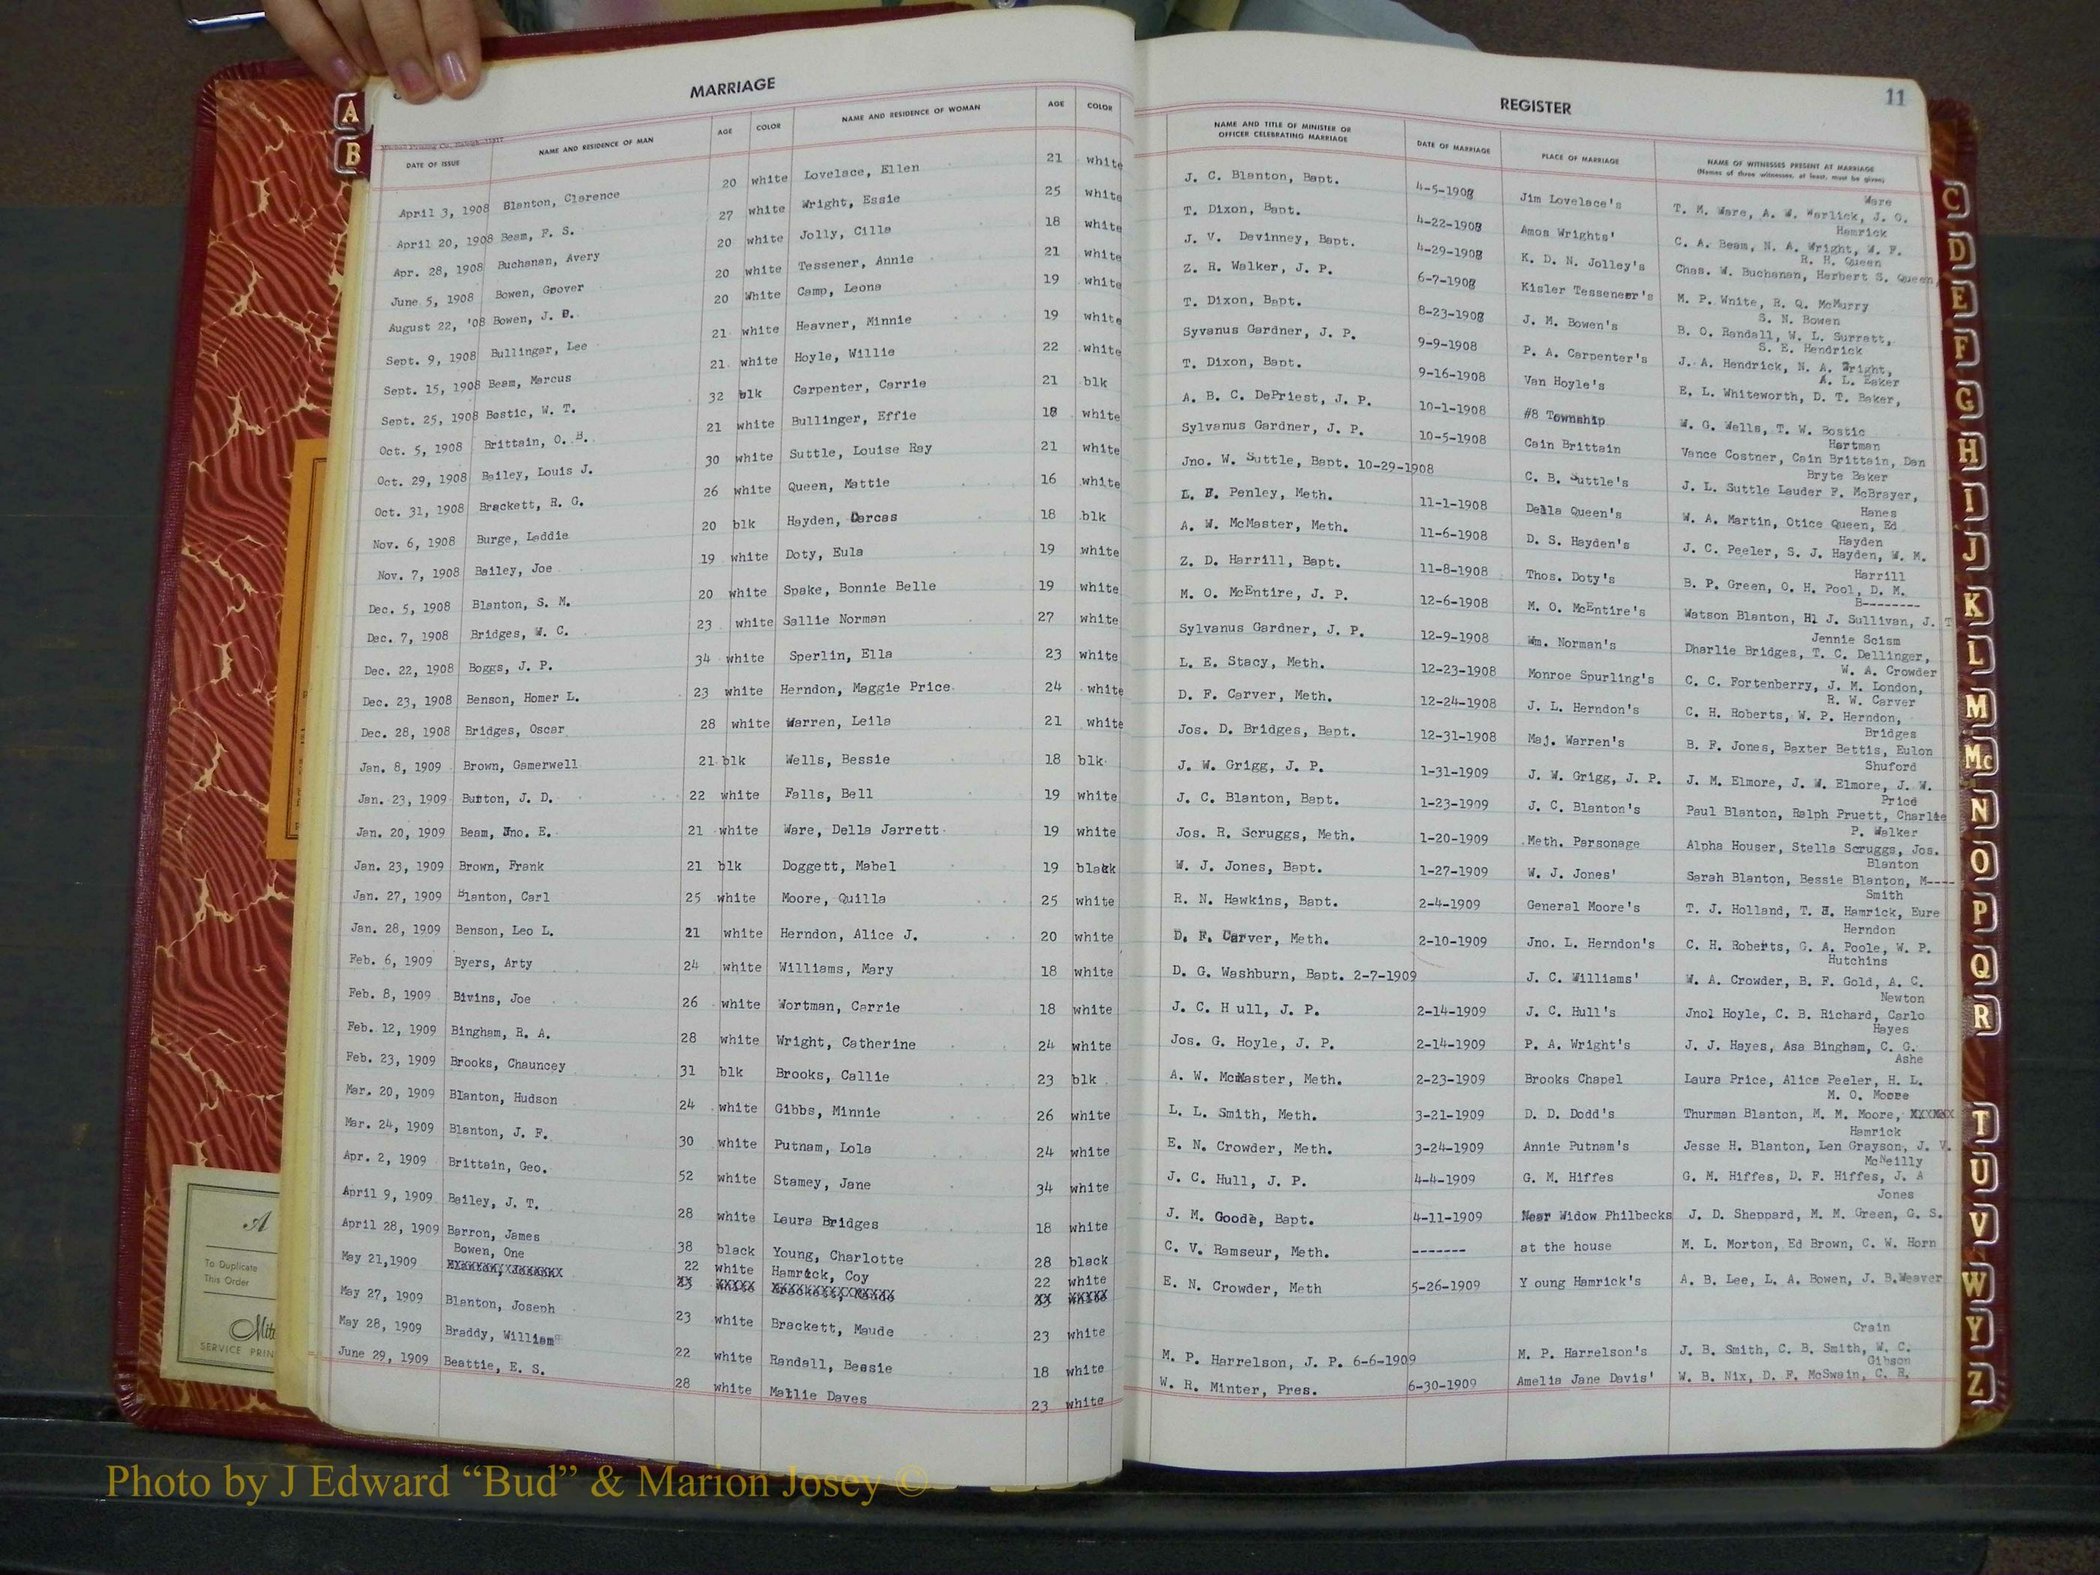 MARRIAGE
DATE OF ISSUE NAME AND RESIDENCE OF MAN AGE COLOR NAME AND RESIDENCE OF WOMAN AGE COLOR
April 3, 1908 Blanton, Clarence 20 white Lovelace, Ellen 21 white
April 20, 1908 Beam, F. S. 27 white Wright, Essie 25 white
Apr. 28, 1908 Buchanan, Avery 20 white Jolly, Cilla 18 white
June 5, 1908 Bowen, Grover 20 white Tessener, Annie 21 white
August 22, '08 Bowen, J. B. 20 White Camp, Leona 19 white
Sept. 9, 1908 Bullinger, Lee 21 white Heavner, Minnie 19 white
Sept. 15, 1908 Beam, Marcus 21 white Hoyle, Willie 22 white
Sept. 25, 1908 Bostic, W. T. 32 blk Carpenter, Carrie 21 blk
Oct. 5, 1908 Brittain, O. B. 21 white Bullinger, Effie 18 white
Oct. 29, 1908 Bailey, Louis J. 30 white Suttle, Louise Ray 21 white
Oct. 31, 1908 Brackett, R. G. 26 white Queen, Mattie 16 white
Nov. 6, 1908 Burge, Laddie 20 blk Hayden, Darcas 18 blk
Nov. 7, 1908 Bailey, Joe 19 white Doty, Eula 19 white
Dec. 5, 1908 Blanton, S. M. 20 white Spake, Bonnie Belle 19 white
Dec. 7, 1908 Bridges, W. C. 23 white Sallie Norman 27 white
Dec. 22, 1908 Boggs, J. P. 34 white Sperlin, Ella 23 white
Dec. 23, 1908 Benson, Homer L. 23 white Herndon, Maggie Price 24 white
Dec. 28, 1908 Bridges, Oscar 28 white Warren, Leila 21 white
Jan. 8, 1909 Brown, Gamerwell 21 blk Wells, Bessie 18 blk
Jan. 23, 1909 Burton, J. D. 22 white Falls, Bell 19 white
Jan. 20, 1909 Beam, Jno. E. 21 white Ware, Della Jarrett 19 white
Jan. 23, 1909 Brown, Frank 21 blk Doggett, Mabel 19 black
Jan. 27, 1909 Blanton, Carl 25 white Moore, Quilla 25 white
Jan. 28, 1909 Benson, Leo L. 21 white Herndon, Alice J. 20 white
Feb. 6, 1909 Byers, Arty 24 white Williams, Mary 18 white
Feb. 8, 1909 Bivins, Joe 26 white Wortman, Carrie 18 white
Feb. 12, 1909 Bingham, R. A. 28 white Wright, Catherine 24 white
Feb. 23, 1909 Brooks, Chauncey 31 blk Brooks, Callie 23 blk
Mar. 20, 1909 Blanton, Hudson 24 white Gibbs, Minnie 26 white
Mar. 24, 1909 Blanton, J. F. 30 white Putnam, Lola 24 white
Apr. 2, 1909 Brittain, Geo. 52 white Stamey, Jane 34 white
April 9, 1909 Bailey, J. T. 28 white Laura Bridges 18 white
April 28, 1909 Barron, James 38 black Young, Charlotte 28 black
May 21,1909 Bowen, One 22 white Hamrick, Coy 22 white
May 27, 1909 Blanton, Joseph 23 white Brackett, Maude 23 white
May 28, 1909 Braddy, William 22 white Randall, Bessie 18 white
June 29, 1909 Beattie, E. S. 28 white Mallie Daves 23 white
REGISTER
11
NAME AND TITLE OF MINISTER OR OFFICER CELEBRATING MARRIAGE DATE OF MARRIAGE PLACE OF MARRIAGE NAME OF WITNESSES PRESENT AT MARRIAGE
(Names of three witnesses, at least, must be given)
Ware
J. C. Blanton, Bapt. 4-5-1908 Jim Lovelace's T. M. Ware, A. W. Warlick, J. O.
Hamrick
T. Dixon, Bapt. 4-22-1908 Amos Wrights' C. A. Beam, N. A. Wright, W. F.
R. H. Queen
J. V. Devinney, Bapt. 4-29-1908 K. D. N. Jolley's Chas. W. Buchanan, Herbert S. Queen,
Z. R. Walker, J. P. 6-7-1908 Kisler Tesseneer's M. P. White, R. Q. McMurry
S. N. Bowen
T. Dixon, Bapt. 8-23-1908 J. M. Bowen's B. O. Randall, W. L. Surratt,
S. E. Hendrick
Syvanus Gardner, J. P. 9-9-1908 P. A. Carpenter's J. A. Hendrick, N. A. Wright,
A. L. Baker
T. Dixon, Bapt. 9-16-1908 Van Hoyle's E. L. Whiteworth, D. T. Baker,
A. B. C. DePriest, J. P. 10-1-1908 #8 Township W. G. Wells, T. W. Bostic
Hartman
Sylvanus Gardner, J. P. 10-5-1908 Cain Brittain Vance Costner, Cain Brittain, Dan
Bryte Baker
Jno. W. Suttle, Bapt. 10-29-1908 C. B. Suttle's J. L. Suttle Lauder F. McBrayer,
Hanes
L. F. Penley, Meth. 11-1-1908 Della Queen's W. A. Martin, Otice Queen, Ed
Hayden
A. W. McMaster, Meth. 11-6-1908 D. S. Hayden's J. C. Peeler, S. J. Hayden, W. M.
Harrill
Z. D. Harrill, Bapt. 11-8-1908 Thos. Doty's B. P. Green, O. H. Pool, D. M.
B--------
M. O. McEntire, J. P. 12-6-1908 M. O. McEntire's Watson Blanton, H. J. Sullivan, J. T
Jennie Scism
Sylvanus Gardner, J. P. 12-9-1908 Wm. Norman's Dharlie Bridges, T. C. Dellinger,
W. A. Crowder
L. E. Stacy, Meth. 12-23-1908 Monroe Spurling's C. C. Fortenberry, J. M. London,
R. W. Carver
D. F. Carver, Meth. 12-24-1908 J. L. Herndon's C. H. Roberts, W. P. Herndon,
Bridges
Jos. D. Bridges, Bapt. 12-31-1908 Maj. Warren's B. F. Jones, Baxter Bettis, Eulon
Shuford
J. W. Grigg, J. P. 1-31-1909 J. W. Grigg, J. P. J. M. Elmore, J. W. Elmore, J. W.
Price
J. C. Blanton, Bapt. 1-23-1909 J. C. Blanton's Paul Blanton, Ralph Pruett, Charlie
P. Walker
Jos. R. Scruggs, Meth. 1-20-1909 Meth. Parsonage Alpha Houser, Stella Scruggs, Jos.
Blanton
W. J. Jones, Bapt. 1-27-1909 W. J. Jones' Sarah Blanton, Bessie Blanton, M----
Smith
R. N. Hawkins, Bapt. 2-4-1909 General Moore's T. J. Holland, T. H. Hamrick, Eure
Herndon
D. F. Carver, Meth. 2-10-1909 Jno. L. Herndon's C. H. Roberts, G. A. Poole, W. P.
Hutchins
D. G. Washburn, Bapt. 2-7-1909 J. C. Williams' W. A. Crowder, B. F. Gold, A. C.
Newton
J. C. H ull, J. P. 2-14-1909 J. C. Hull's Jnol Hoyle, C. B. Richard, Carlo
Hayes
Jos. G. Hoyle, J. P. 2-14-1909 P. A. Wright's J. J. Hayes, Asa Bingham, C. G.
Ashe
A. W. McMaster, Meth. 2-23-1909 Brooks Chapel Laura Price, Alice Peeler, H. L.
M. O. Moore
L. L. Smith, Meth. 3-21-1909 D. D. Dodd's Thurman Blanton, M. M. Moore, XXXXXX
Hamrick
E. N. Crowder, Meth. 3-24-1909 Annie Putnam's Jesse H. Blanton, Len Grayson, J. V.
McNeilly
J. C. Hull, J. P. 4-4-1909 G. M. Hiffes G. M. Hiffes, D. F. Hiffes, J. A
Jones
J. M. Goode, Bapt. 4-11-1909 Near Widow Philbecks J. D. Sheppard, M. M. Green, G. S.
C. V. Ramseur, Meth. ------- at the house M. L. Morton, Ed Brown, C. W. Horn
E. N. Crowder, Meth 5-26-1909 Y oung Hamrick's A. B. Lee, L. A. Bowen, J. B.Weaver
Crain
M. P. Harrelson, J. P. 6-6-1909 M. P. Harrelson's J. B. Smith, C. B. Smith, W. C.
Gibson
W. R. Minter, Pres. 6-30-1909 Amelia Jane Davis' W. B. Nix, D. F. McSwain, C. R.
A
B
C
D
E
F
G
H
I
J
K
L
M
Mc
N
O
P
Q
R
T
U
V
W
Y
Z
To Duplicate
This Order
SERVICE PRIN
Photo by J Edward “Bud” & Marion Josey ©